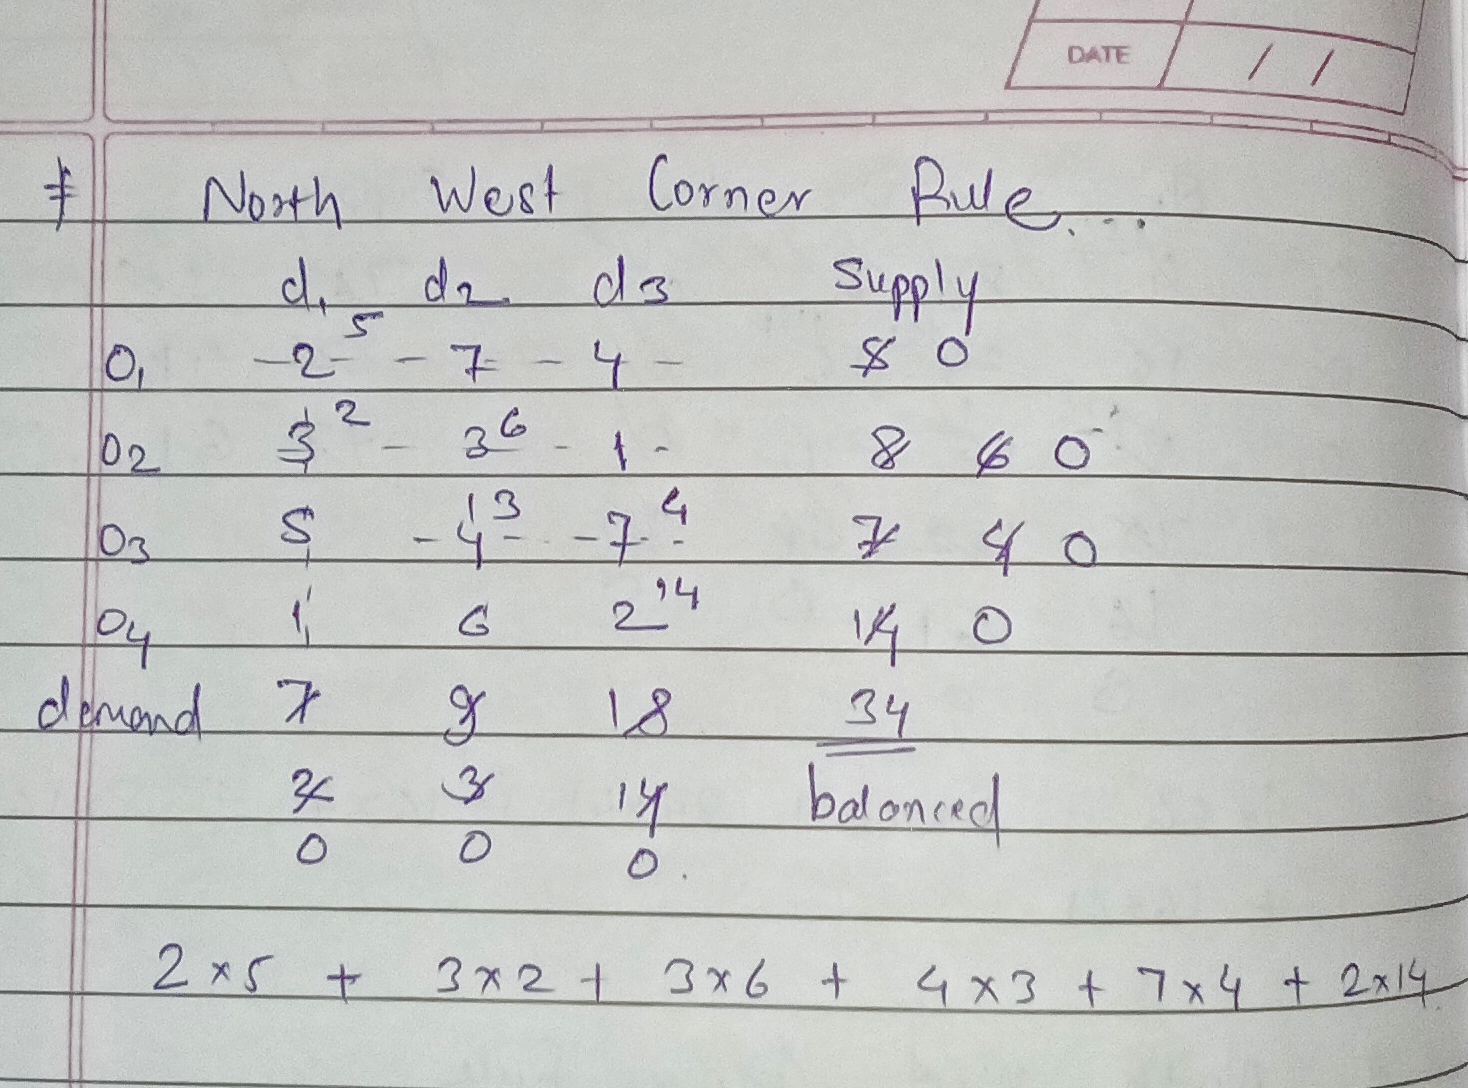 DATE / /
# North West Corner Rule...
d1 d2 d3 Supply
O1 -2-5 - 7 - 4 - 5 0
O2 3 2 - 3 6 - 1 - 8 6 0
O3 5 - 4 3 - - 7 - 4 7 4 0
O4 1 6 2 14 14 0
demand 7 9 18 34
2 3 14 balanced
0 0 0.
2x5 + 3x2 + 3x6 + 4x3 + 7x4 + 2x14